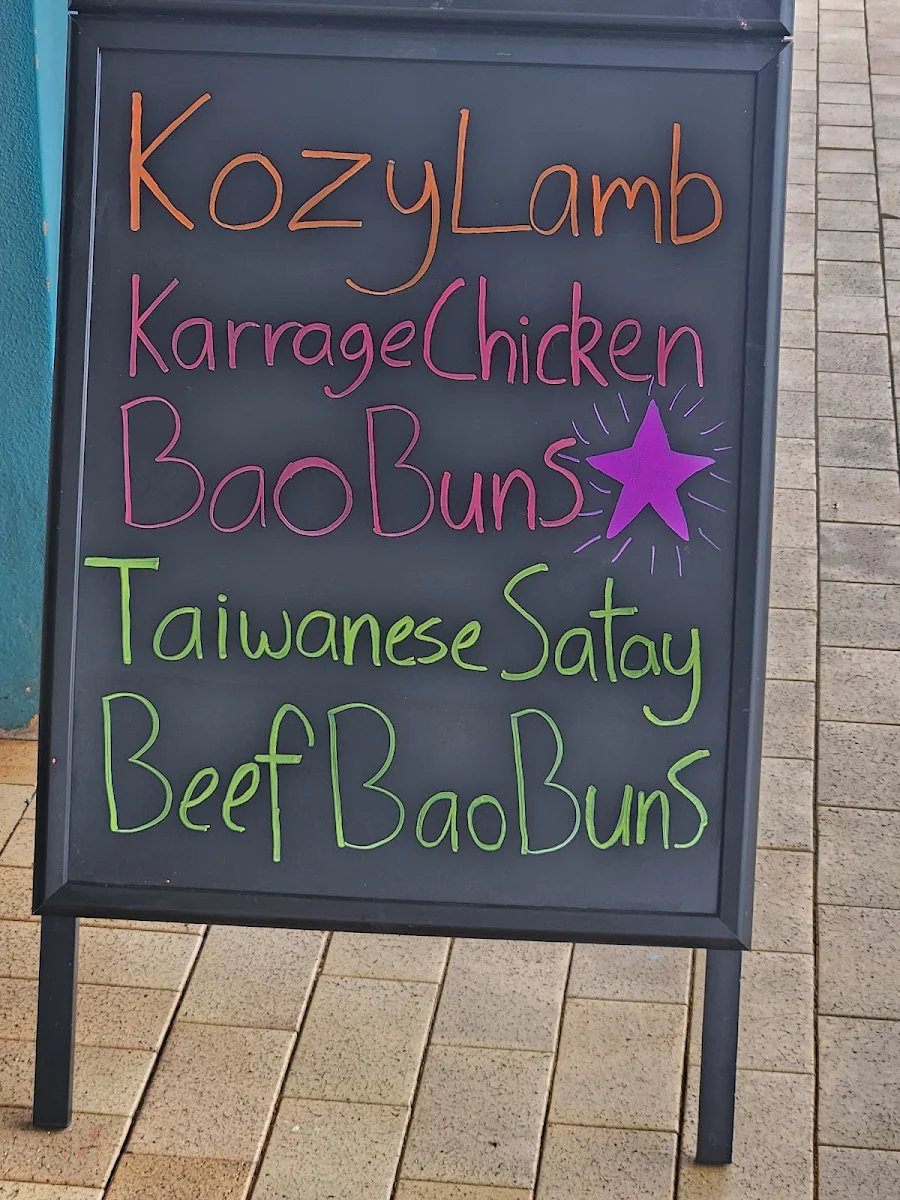 Kozy Lamb
Karrage Chicken
Bao Buns
Taiwanese Satay
Beef Bao Buns